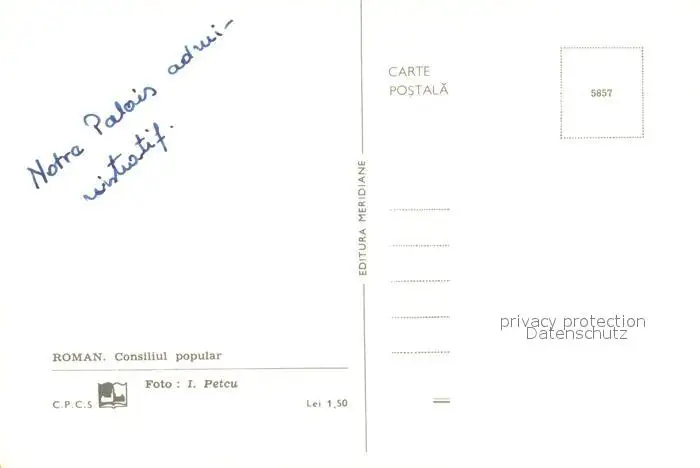 Notre Palais admi-
nistratif.
CARTE
POŞTALĂ
5857
EDITURA MERIDIANE
privacy protection
Datenschutz
ROMAN. Consiliul popular
Foto : I. Petcu
C.P.C.S.
Lei 1,50